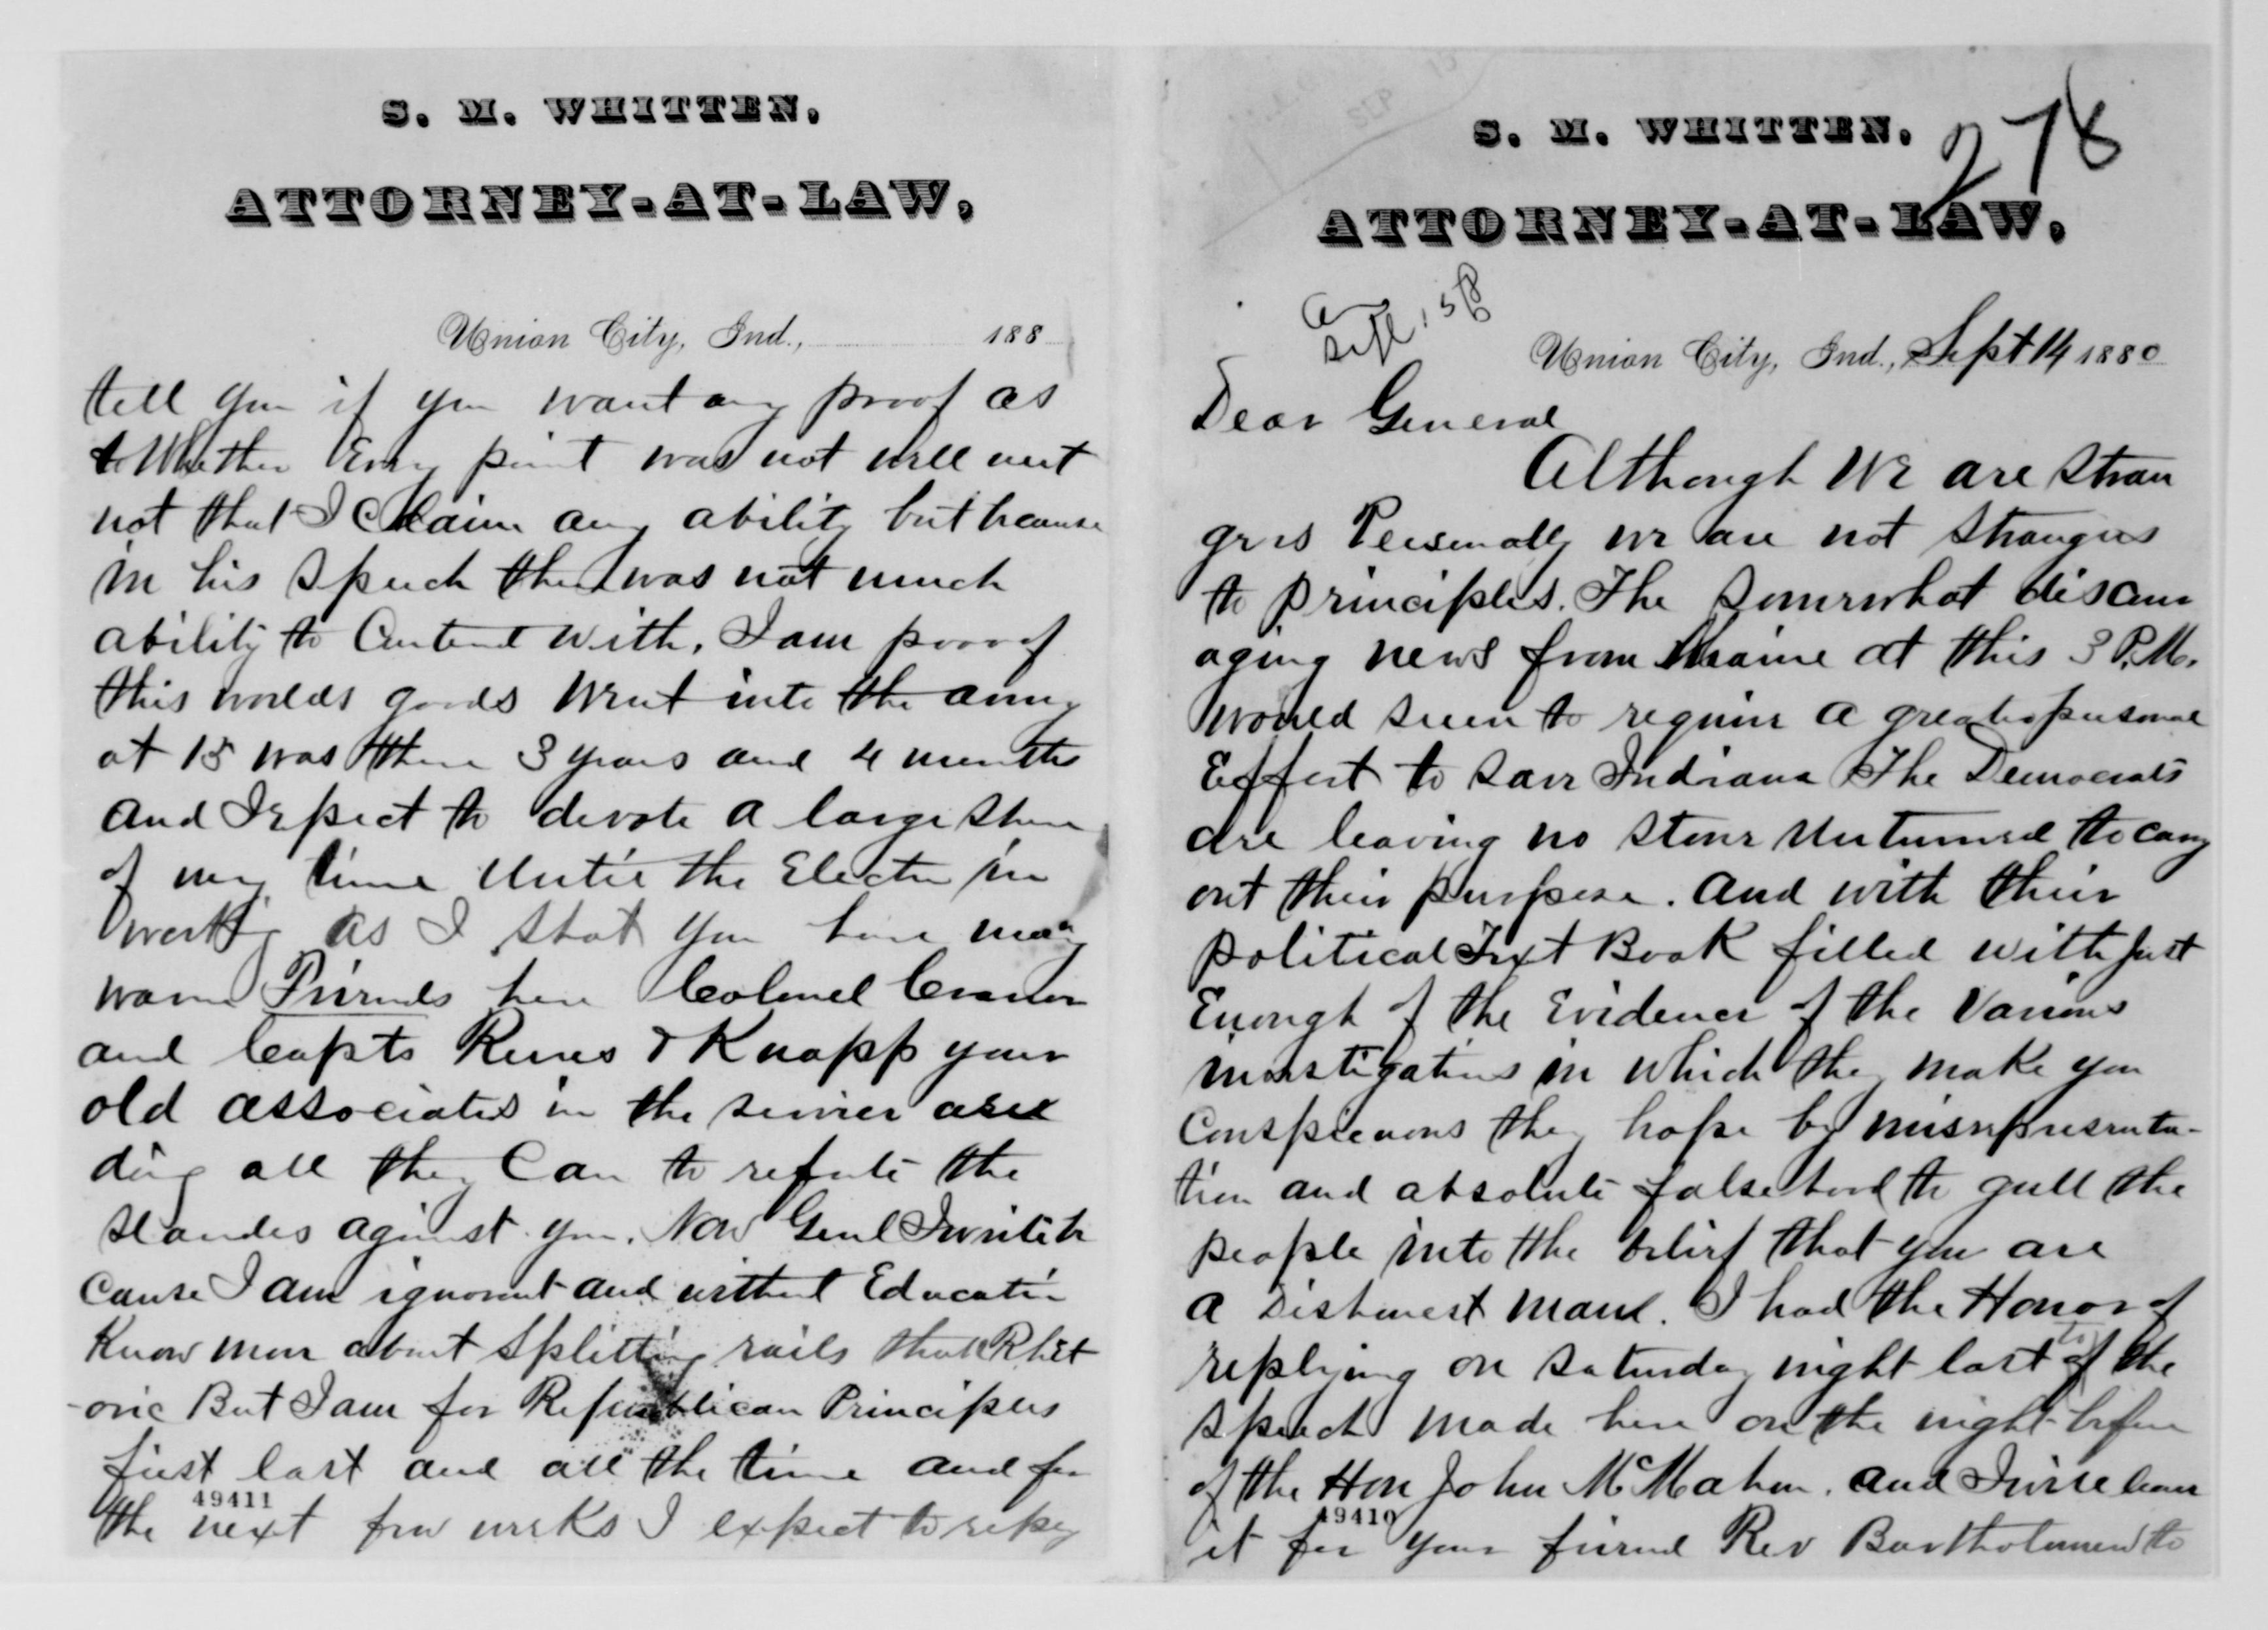 S. M. WHITTEN.
278
ATTORNEY-AT-LAW.
Sept 18
Union City, Ind., Sept 14 1880
Dear General
Although We are Stran
gers Personally we are not Strangers
to principles. The Somewhat discour
aging news from Maine at this 3 P.M.
would seem to require a greater personal
Effort to Save Indiana The Democrats
are leaving no Stone Unturned to carry
out their purpose. And with their
political Text Book filled with just
Enough of the Evidence of the Various
investigations in which they make you
Conspicuous they hope by misrepresenta-
tion and absolute falsehood to gull the
people into the belief that you are
a Dishonest man. I had the Honor of
replying on Saturday night last to the
Speech made here on the night before
of the Hon John McMahon. and I will leave
49410
it for your friend Rev Bartholomew to
S. M. WHITTEN.
ATTORNEY-AT-LAW.
Union City, Ind., 188
tell you if you want any proof as
to Whether Every point was not well met
not that I Claim any ability but because
in his Speech there was not much
ability to Contend with. I am poor of
this worlds goods went into the army
at 15 was there 3 years and 4 months
and I expect to devote a large share
of my time Until the Election in
working as I stated you have many
warm Friends here Colonel
and Capts & Knapp your
old associates in the service are
doing all they Can to refute the
Slanders against you. Now Genl I write be
cause I am ignorant and without Education
Know more about Splitting rails than Rhet
-oric But I am for Republican Principles
first last and all the time and for
49411
the next few weeks I expect to reply